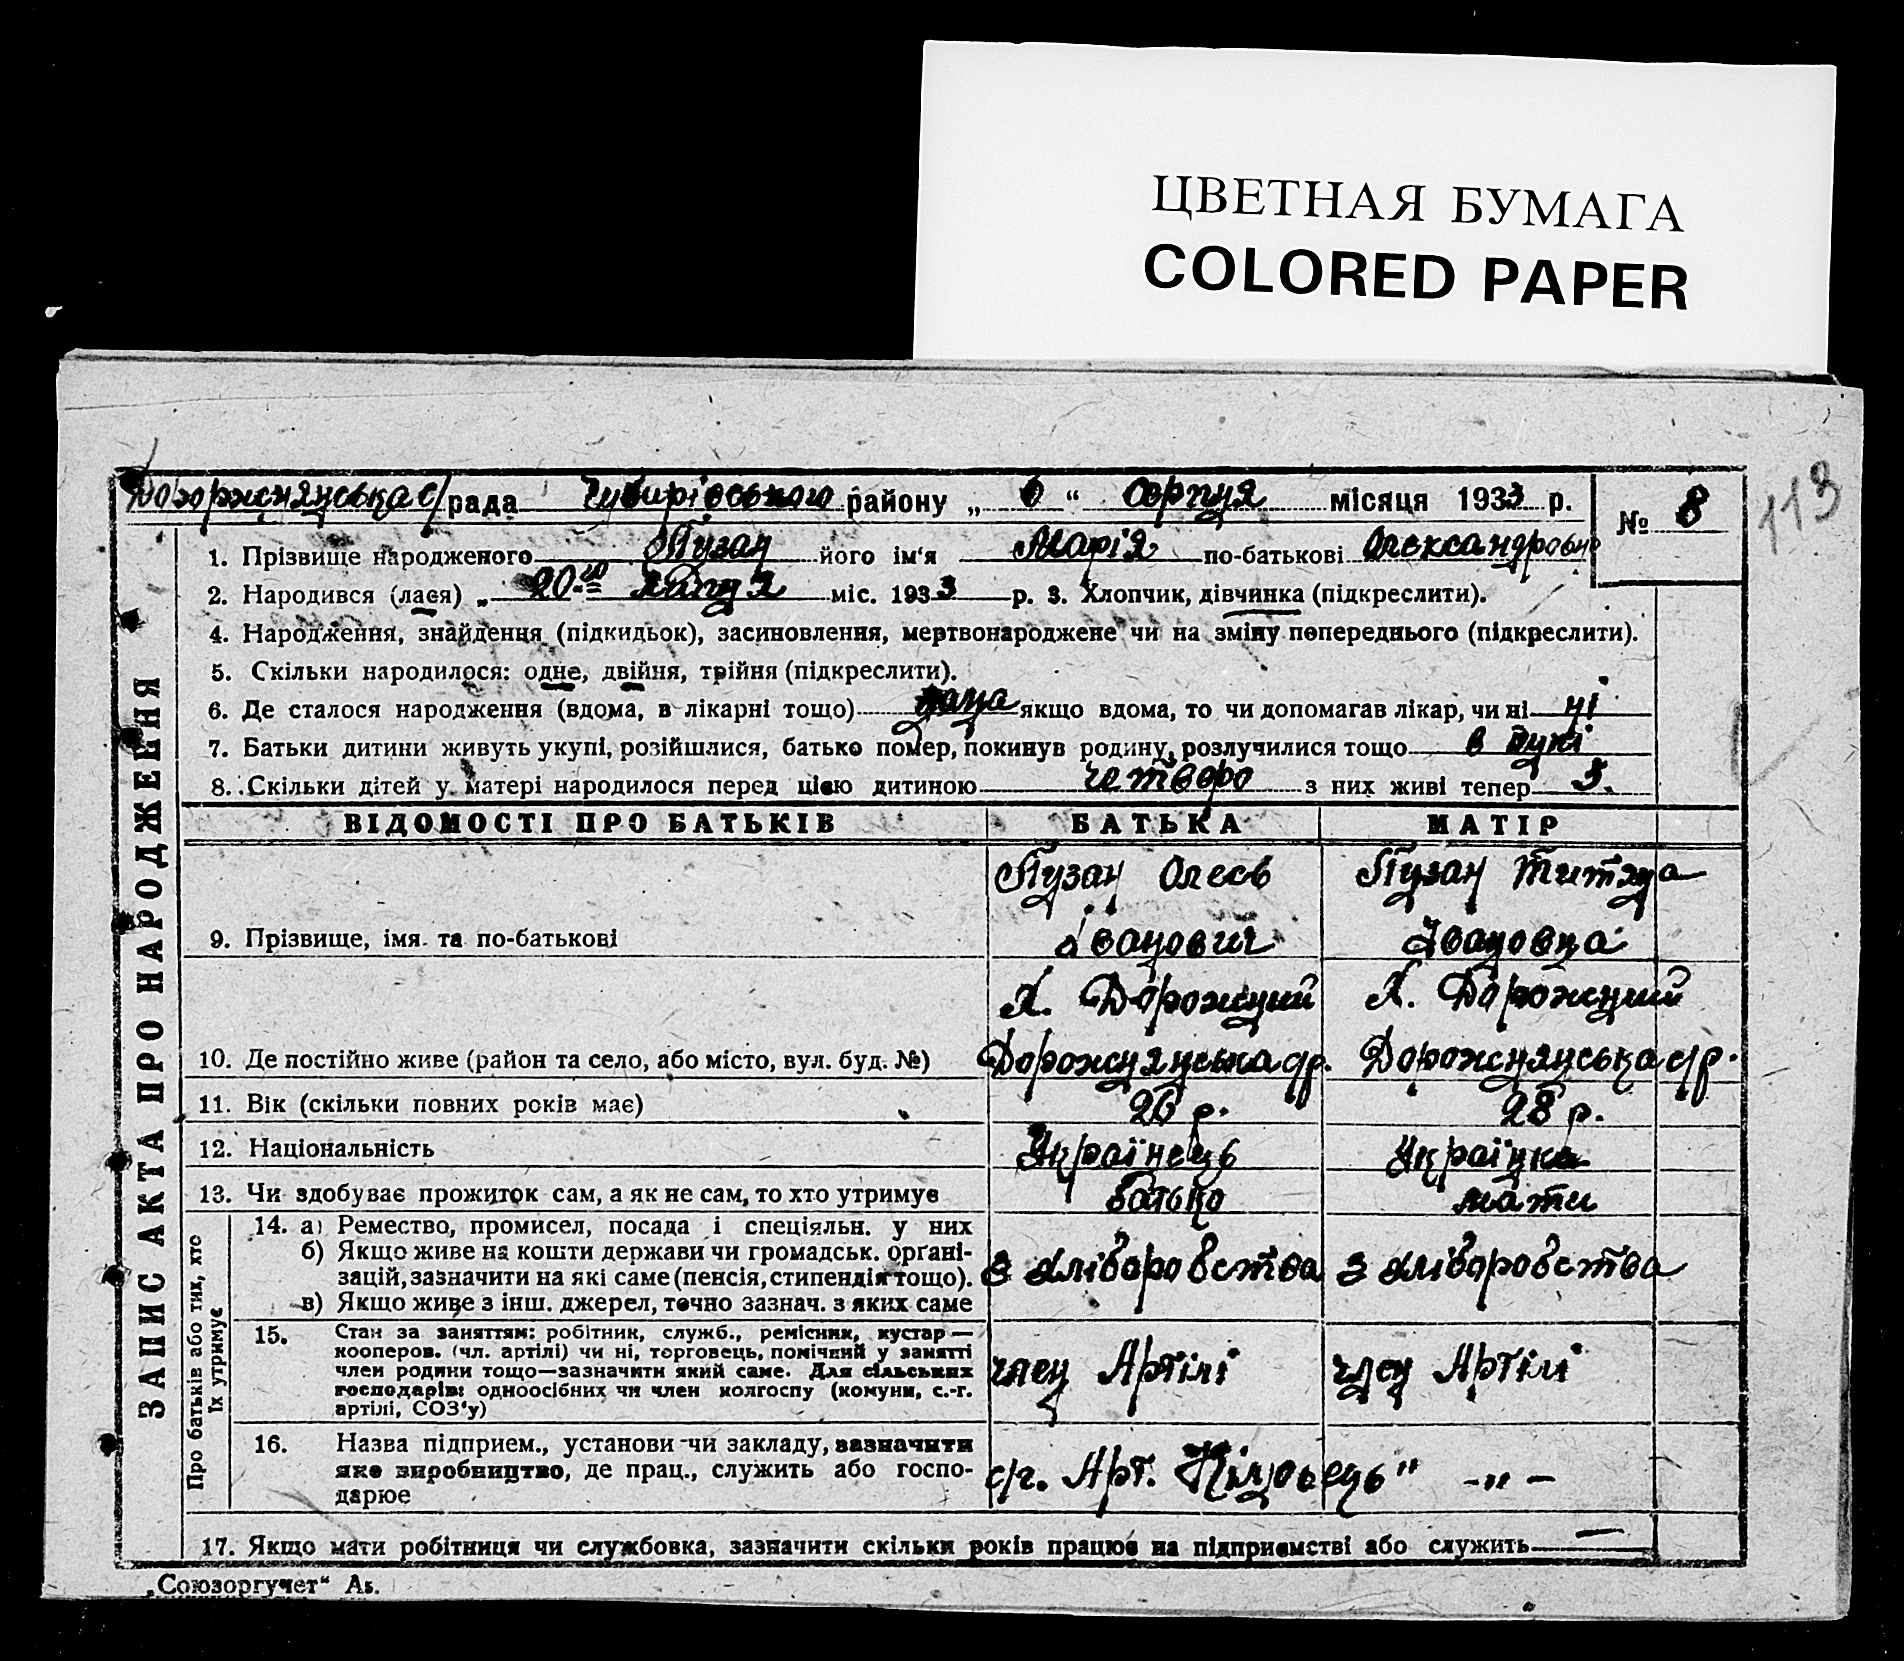 ЦВЕТНАЯ БУМАГА
COLORED PAPER
113
Дорожнянська с/рада Чубарівського району „ 6 “ серпня місяця 1933 р.
№ 8
1. Прізвище народженого Пузан його ім'я Марія по-батькові Олександровна
2. Народився (лася) „ 20-го липня міс. 1933 р. 3. Хлопчик, дівчинка (підкреслити).
4. Народження, знайдення (підкидьок), засиновлення, мертвонароджене чи на зміну попереднього (підкреслити).
5. Скільки народилося: одне, двійня, трійня (підкреслити).
6. Де сталося народження (вдома, в лікарні тощо) якщо вдома, то чи допомагав лікар, чи ні ні
7. Батьки дитини живуть укупі, розійшлися, батько помер, покинув родину, розлучилися тощо в купі
8. Скільки дітей у матері народилося перед цією дитиною четверо з них живі тепер 3.
ЗАПИС АКТА ПРО НАРОДЖЕННЯ
ВІДОМОСТІ ПРО БАТЬКІВ БАТЬКА МАТІР
9. Прізвище, імя та по-батькові
Пузан Олесь Іванович
Пузан Титяна Івановна
10. Де постійно живе (район та село, або місто, вул. буд. №)
Х. Дорожний Дорожнянська с/р.
Х. Дорожний Дорожнянська с/р.
11. Вік (скільки повних років має) 26 р. 28 р.
12. Національність Українець Українка
13. Чи здобуває прожиток сам, а як не сам, то хто утримує батько мати
Про батьків або тих, хто їх утримує
14. а) Ремество, промисел, посада і спеціяльн. у них
б) Якщо живе на кошти держави чи громадськ. організацій, зазначити на які саме (пенсія, стипендія тощо).
в) Якщо живе з інш. джерел, точно зазнач. з яких саме
З хліборобства З хліборобства
15. Стан за заняттям: робітник, служб., ремісник, кустар—
кооперов. (чл. артілі) чи ні, торговець, помічний у занятті
член родини тощо—зазначити який саме. Для сільських
господарів: одноосібних чи член колгоспу (комуни, с.-г.
артілі, СОЗ'у)
член Артілі член Артілі
16. Назва підприєм., установи чи закладу, зазначити
яке виробництво, де прац., служить або госпо-
дарює
с/г. Арт. -„-
17. Якщо мати робітниця чи службовка, зазначити скільки років працює на підприємстві або служить —
„Союзоргучет“ А5.